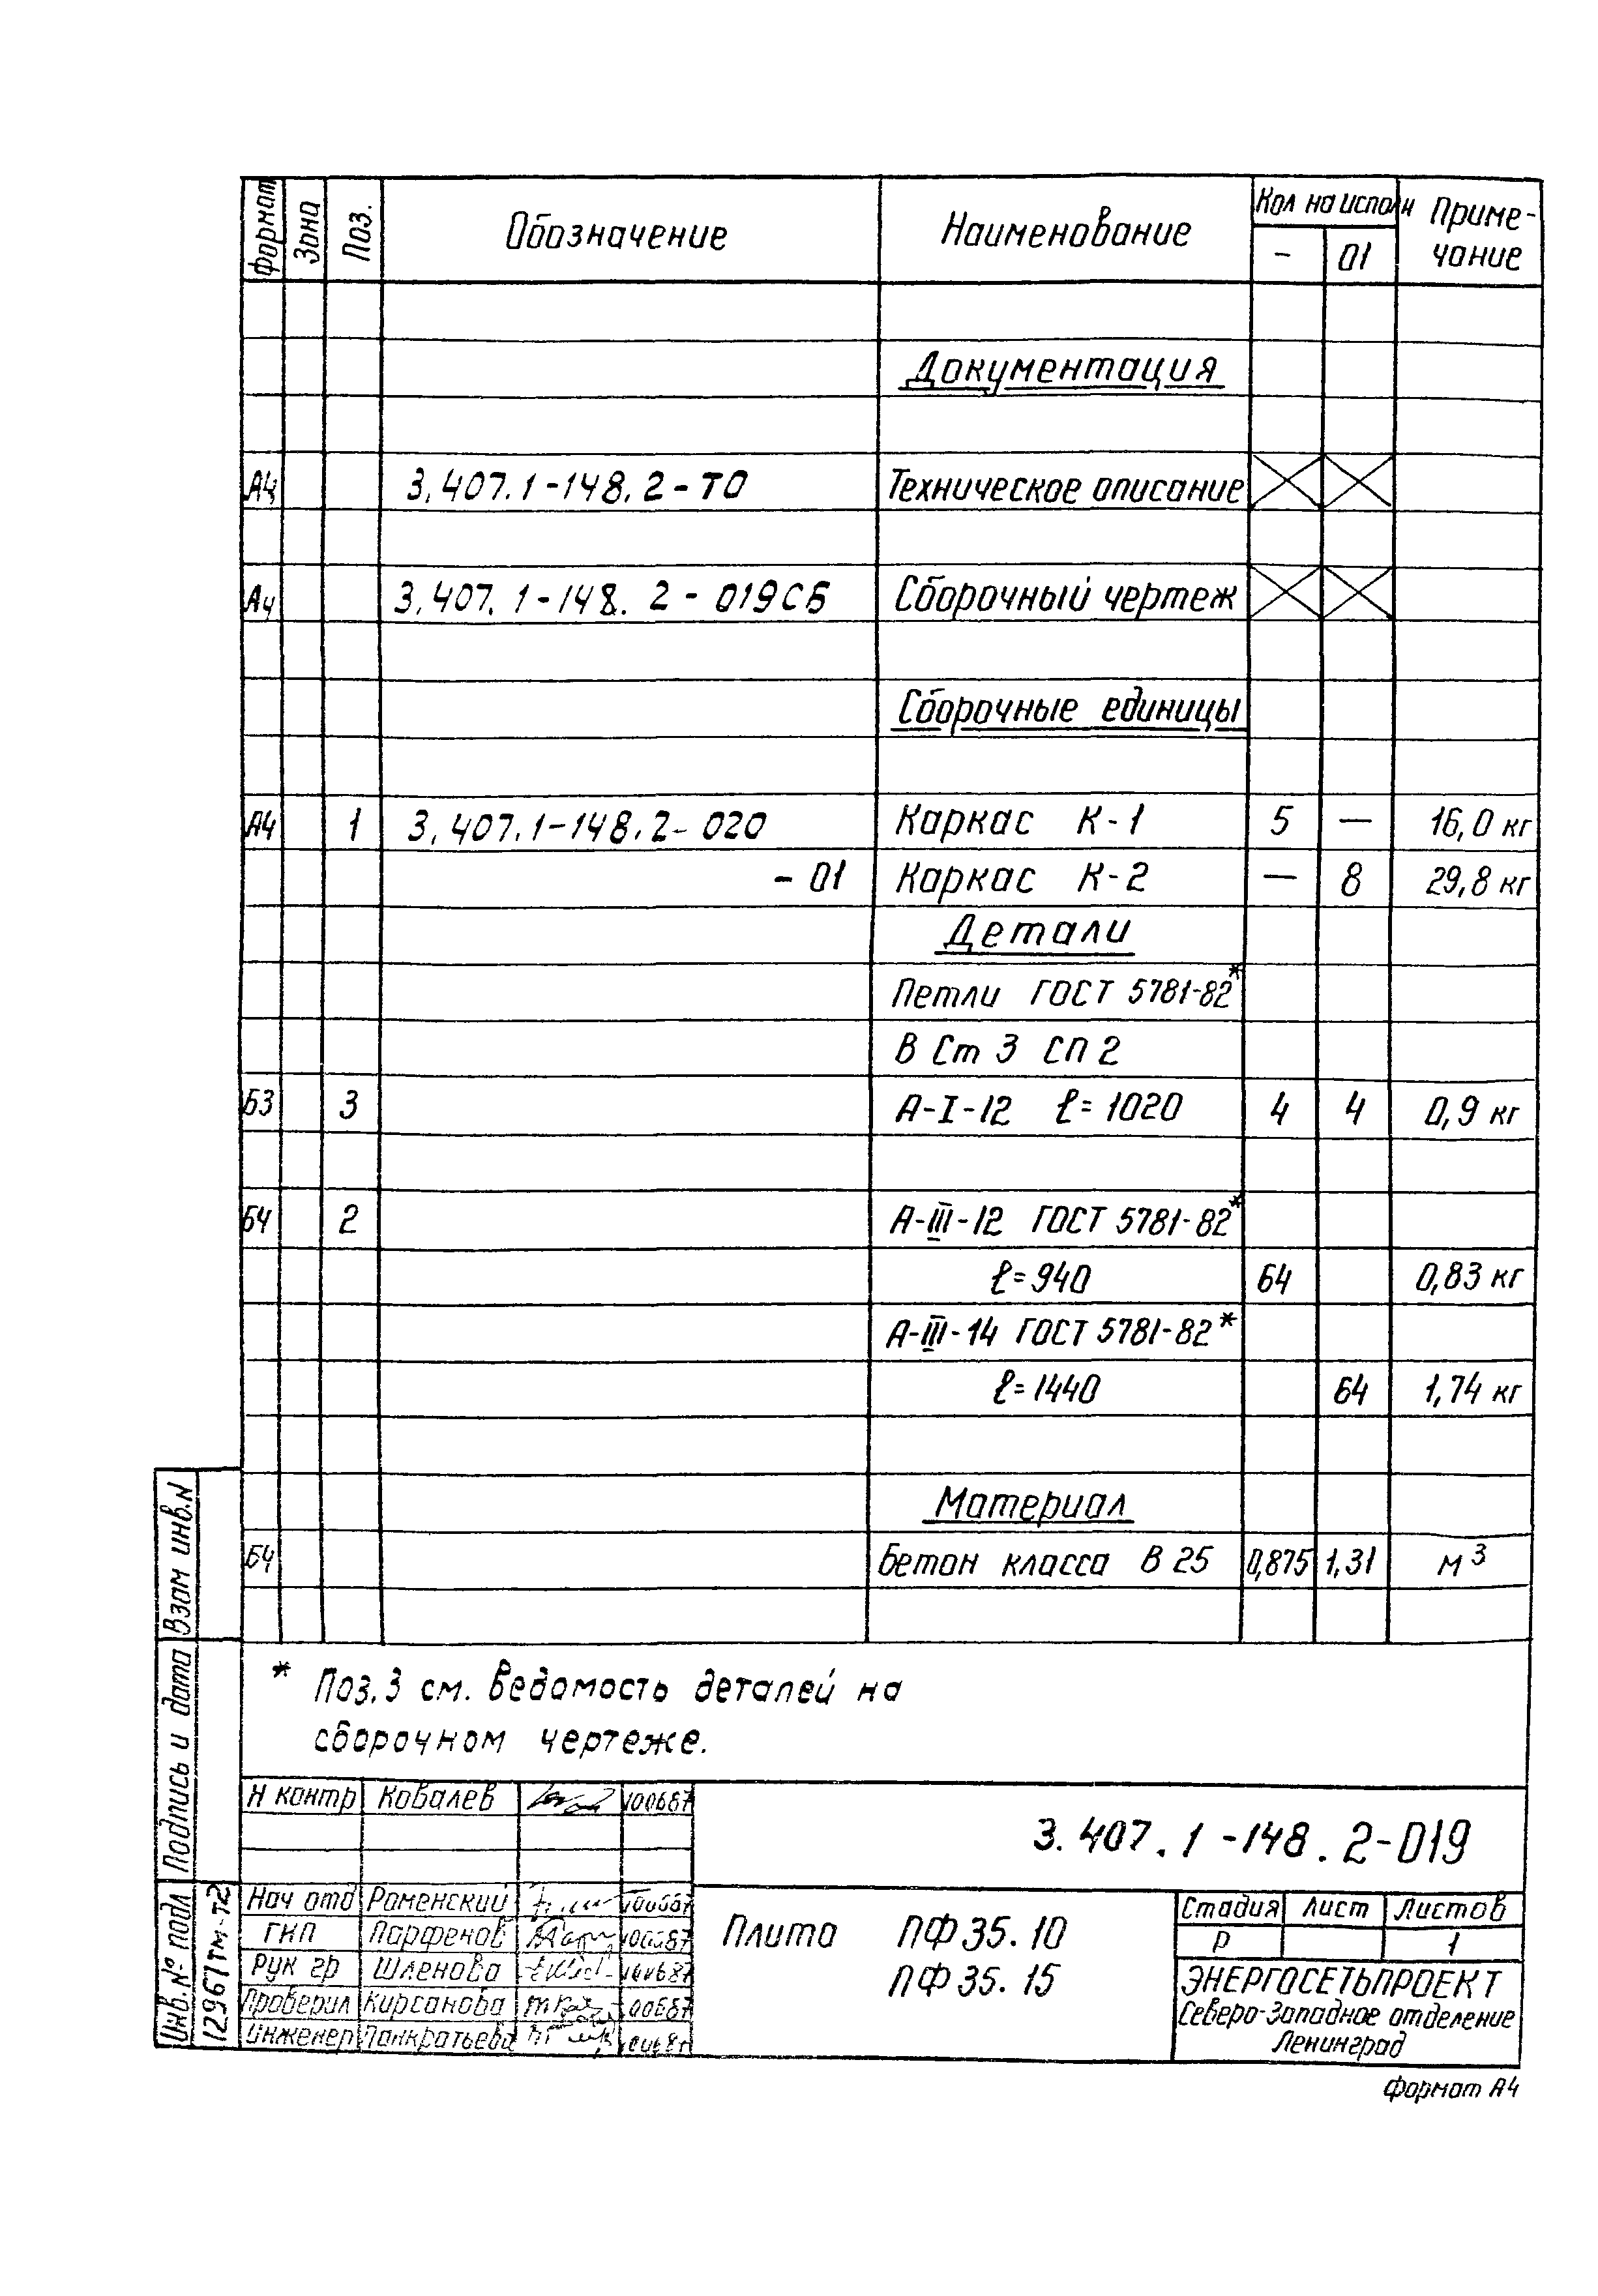 Формат Зона Поз. Обозначение Наименование Кол на исполн Приме-
чание
- 01
Документация
А4 3.407.1-148.2-ТО Техническое описание
А4 3.407.1-148.2-019СБ Сборочный чертеж
Сборочные единицы
А4 1 3.407.1-148.2-020 Каркас К-1 5 — 16,0 кг
-01 Каркас К-2 — 8 29,8 кг
Детали
Петли ГОСТ 5781-82*
В Ст 3 СП 2
Б3 3 А-I-12 ℓ=1020 4 4 0,9 кг
Б4 2 А-III-12 ГОСТ 5781-82*
ℓ=940 64 0,83 кг
А-III-14 ГОСТ 5781-82*
ℓ=1440 64 1,74 кг
Материал
Б4 Бетон класса В 25 0,875 1,31 м³
* Поз.3 см. Ведомость деталей на
сборочном чертеже.
Взам инв.N
Подпись и дата
Инв.№ подл
12967тм-т2
Н контр Ковалев 100687
3.407.1-148.2-019
Нач отд Роменский
ГИП Парфенов
Рук гр Шленова
Проверил Кирсанова 00687
Инженер Панкратьева
Плита ПФ 35.10
ПФ 35.15
Стадия Лист Листов
Р 1
ЭНЕРГОСЕТЬПРОЕКТ
Северо-Западное отделение
Ленинград
Формат А4